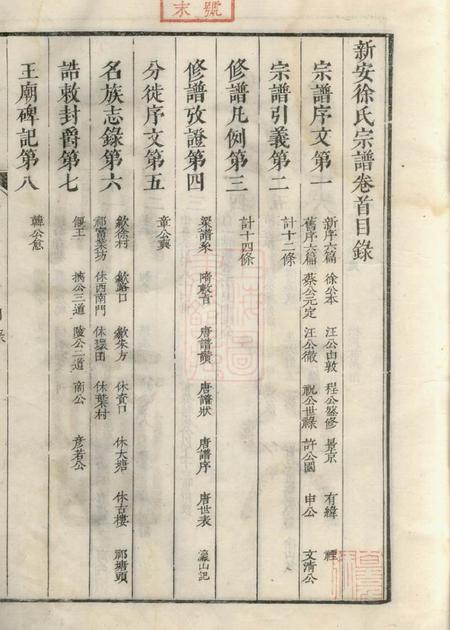 新安徐氏宗譜卷首目錄
宗譜序文第一
新序六篇 徐公本 汪公由敦 程公盛修 景京 有緯 煙
舊序六篇 蔡公元定 汪公徽 祝公世祿 許公國 申公 文清公
宗譜引義第二
計十二條
修譜凡例第三
計十四條
修譜攷證第四
梁譜系 隋敕旨 唐譜讚 唐譜狀 唐譜序 唐世表 瀛山記
分徙序文第五
章公冀
名族志錄第六
歙徐村 歙路口 歙朱方 休資口 休大塘 休古樓 祁塘頭
祁富業坊 休西南門 休環田 休葉村
誥敕封爵第七
偃王 摛公三道 陵公二道 商公 彥若公
王廟碑記第八
韓公愈
末號